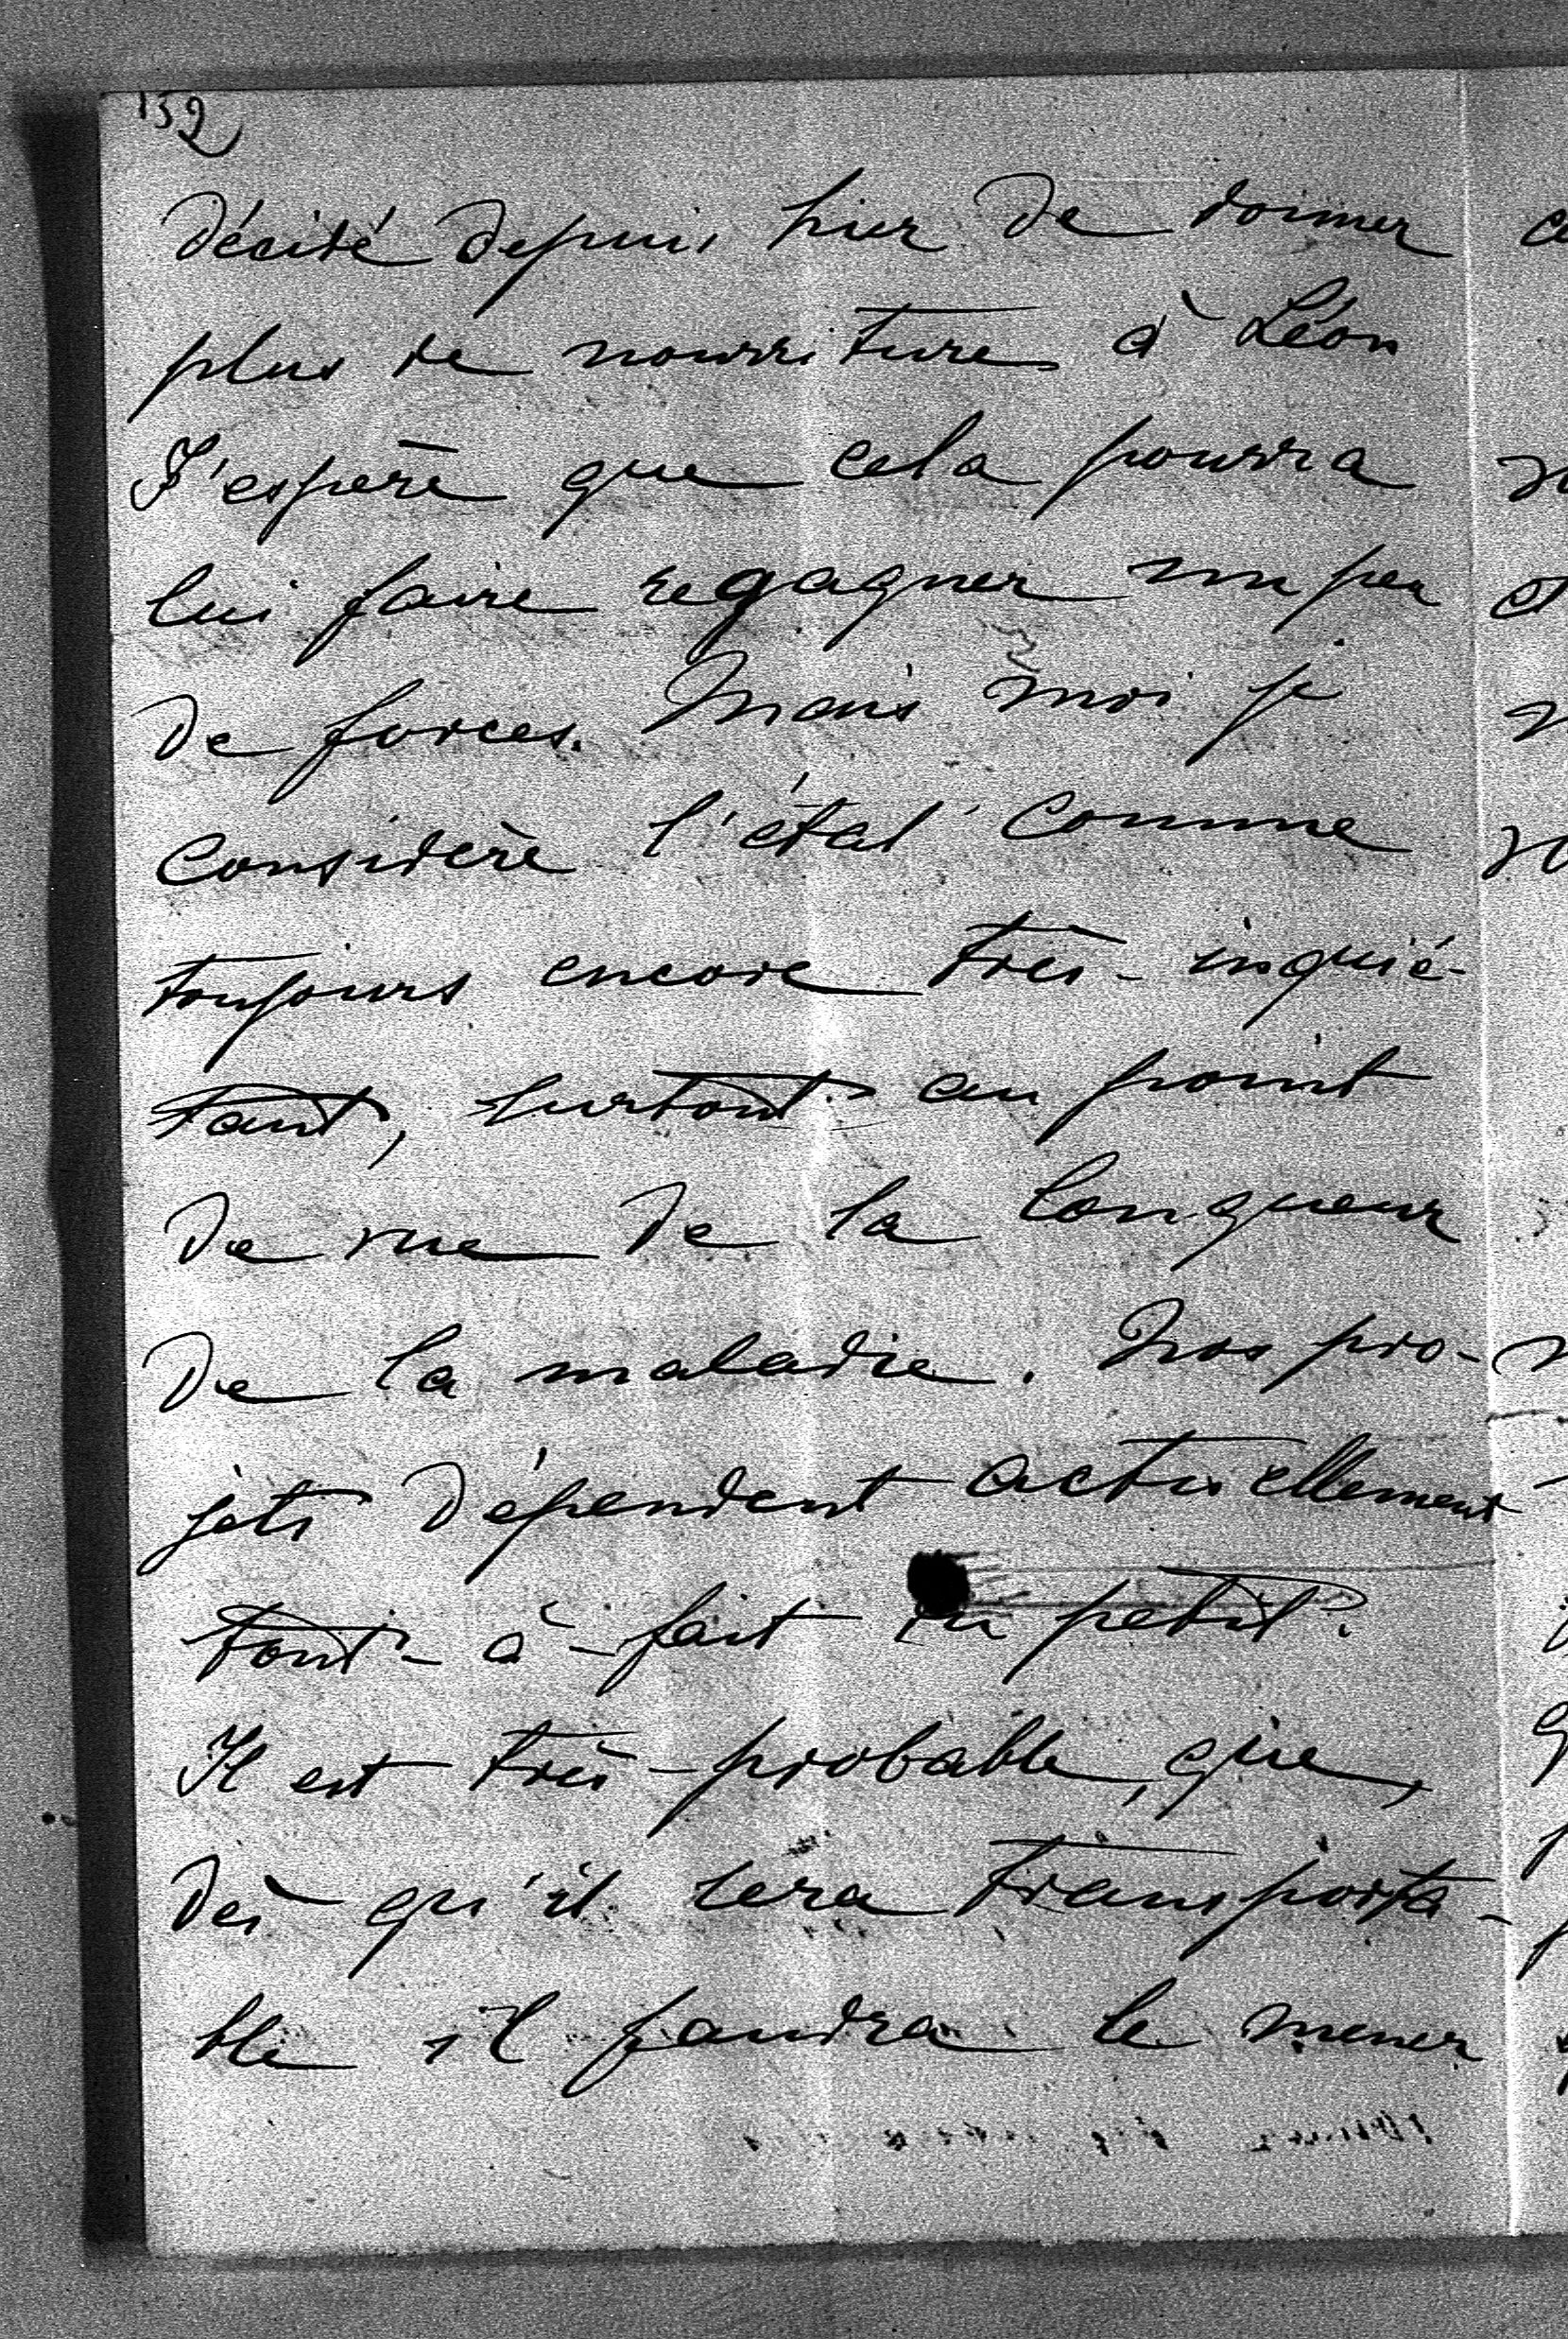 152
décidé depuis hier de donner
plus de nourriture à Léon
J'espère que cela pourra
lui faire regagner un peu
de forces. Mais moi je
considère l'état comme
toujours encore très-inquié-
tant, surtout au point
de vue de la longueur
de la maladie. Nos pro-
jets dépendent actuellement
tout-à-fait du petit.
Il est très-probable, que,
dès qu'il sera transporta-
ble il faudra le mener